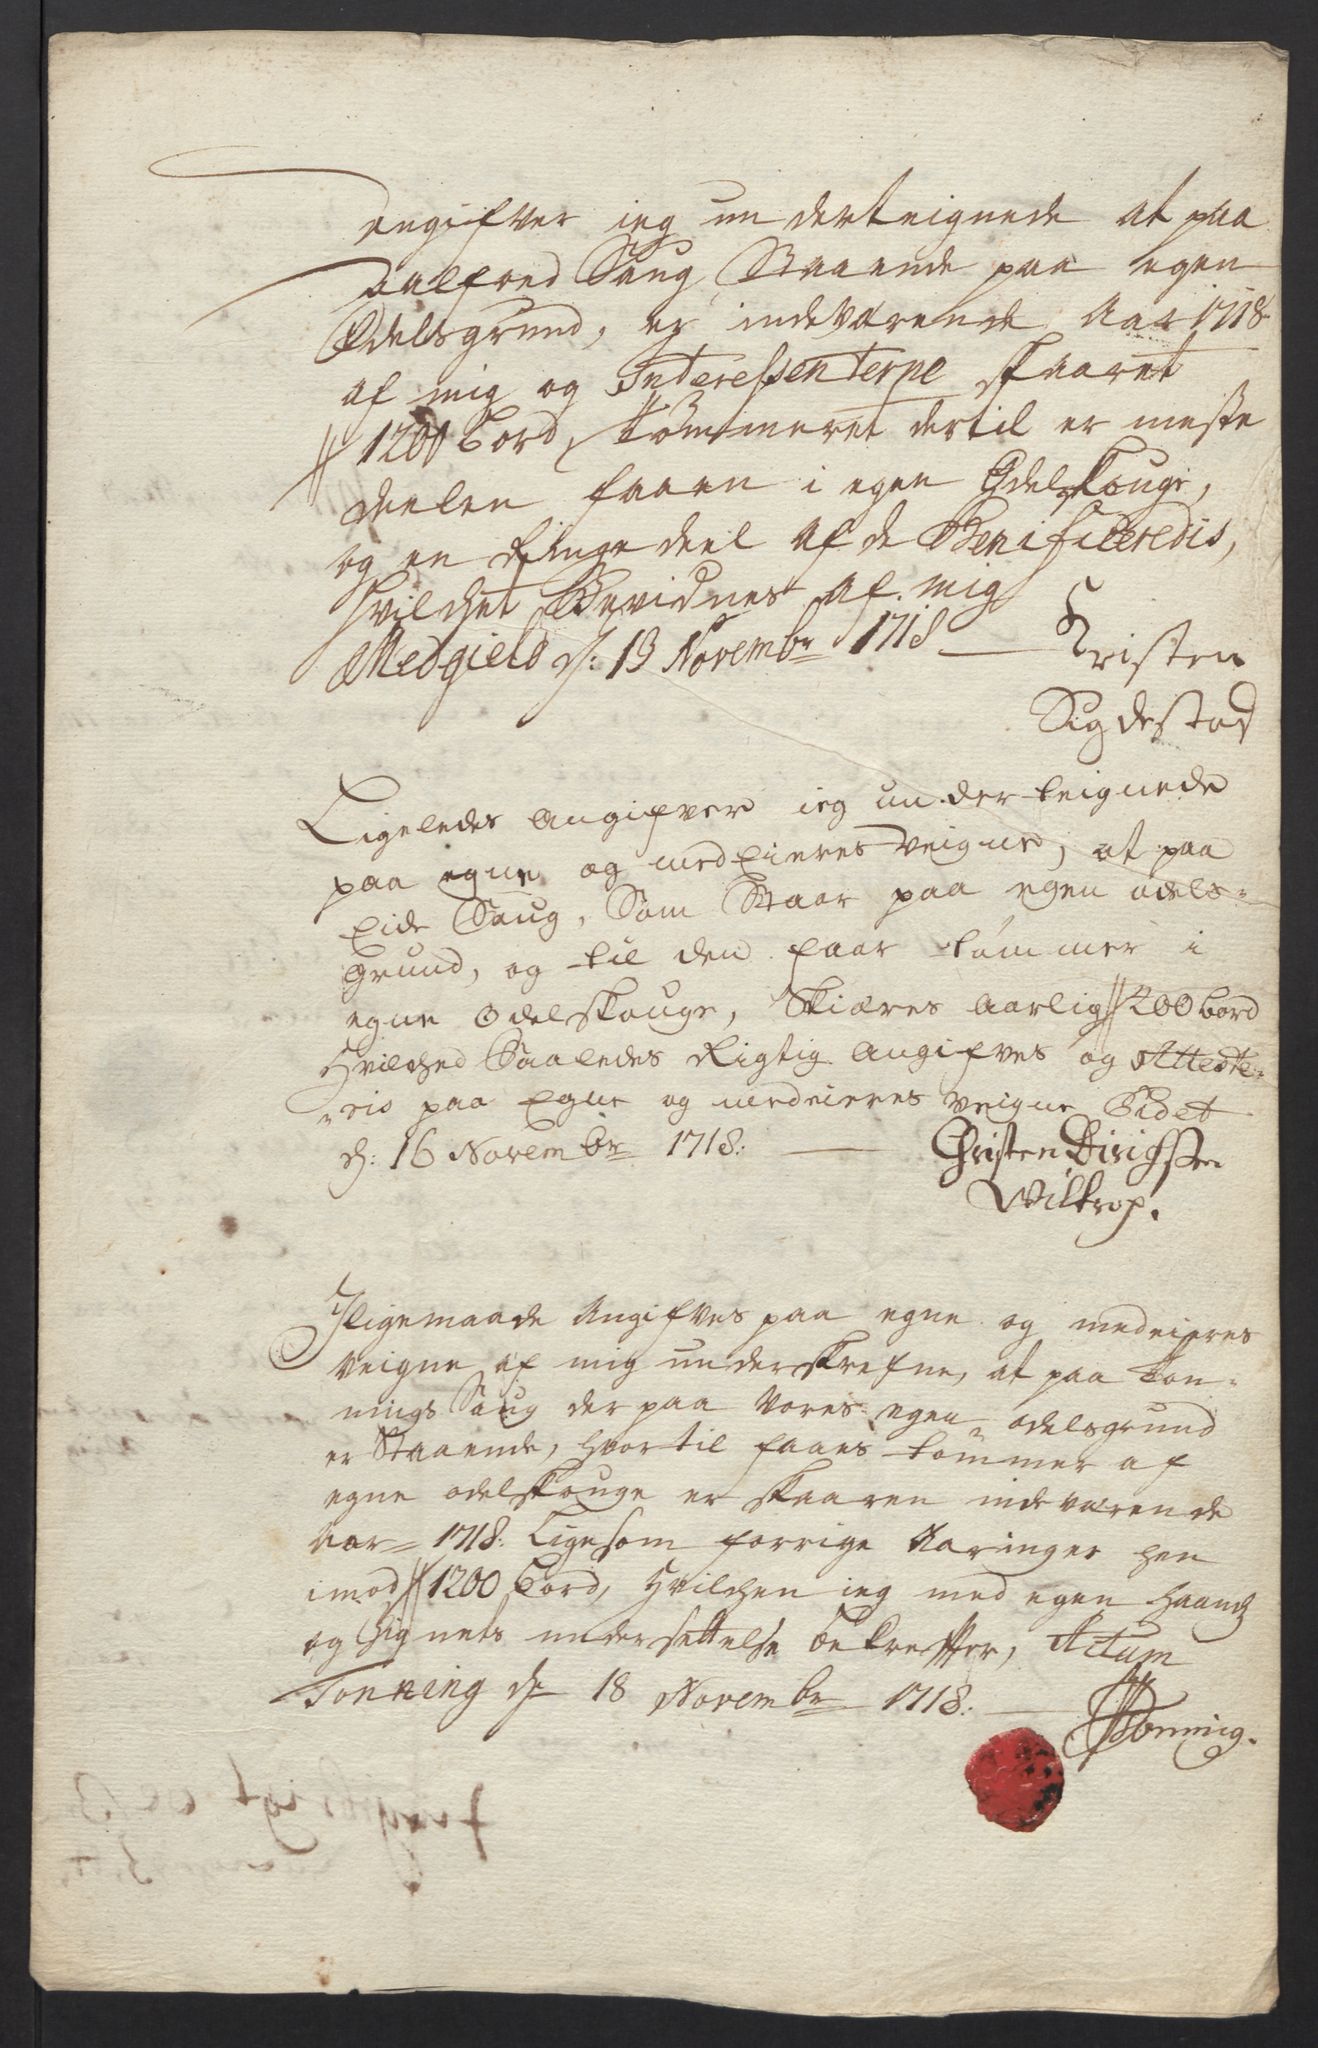 angifver ieg underteignede at paa
Aalfoed Saug, Staaende paa egen
Odelsgrund, er indeværende Aar 1718
af mig og Interessenterne skaaret
1200 bord, tømmeret dertil er meste
deelen faaen i egen Odelskouge,
og en Ringe deel af de Benificeredis,
hvilchet Bevidnes af mig
Medgield d: 13 Novembr 1718 Kristen
Sigdestad
Ligeledes angifver ieg underteignede
paa egne og medEieres veigne, at paa
Eide Saug, Som Staar paa egen odels-
Grund, og til den faar tømmer i
egne Odelskouge, Skiæres aarlig 200 bord
Hvilched Saaledes Rigtig angifves og Atteste-
ris paa Egne og medeieres veigne Eidet
d: 16 Novembr 1718: Christen Dirichssen
Wiltrop.
Iligemaade Angifves paa egne og medeieres
veigne af mig underskrefne, at paa Ton-
nings Saug der paa vores egen odelsgrund
er Staaende, hvortil faaes tømmer af
egne odelskouge er skaaren indeværende
Aar 1718: Ligesom forrige Aaringer hen
imod 1200 Bord, Hvilchen ieg med egen haand
og Signets undersettelse bekreffter, Actum
Tonning d 18 Novembr 1718: Tonning.